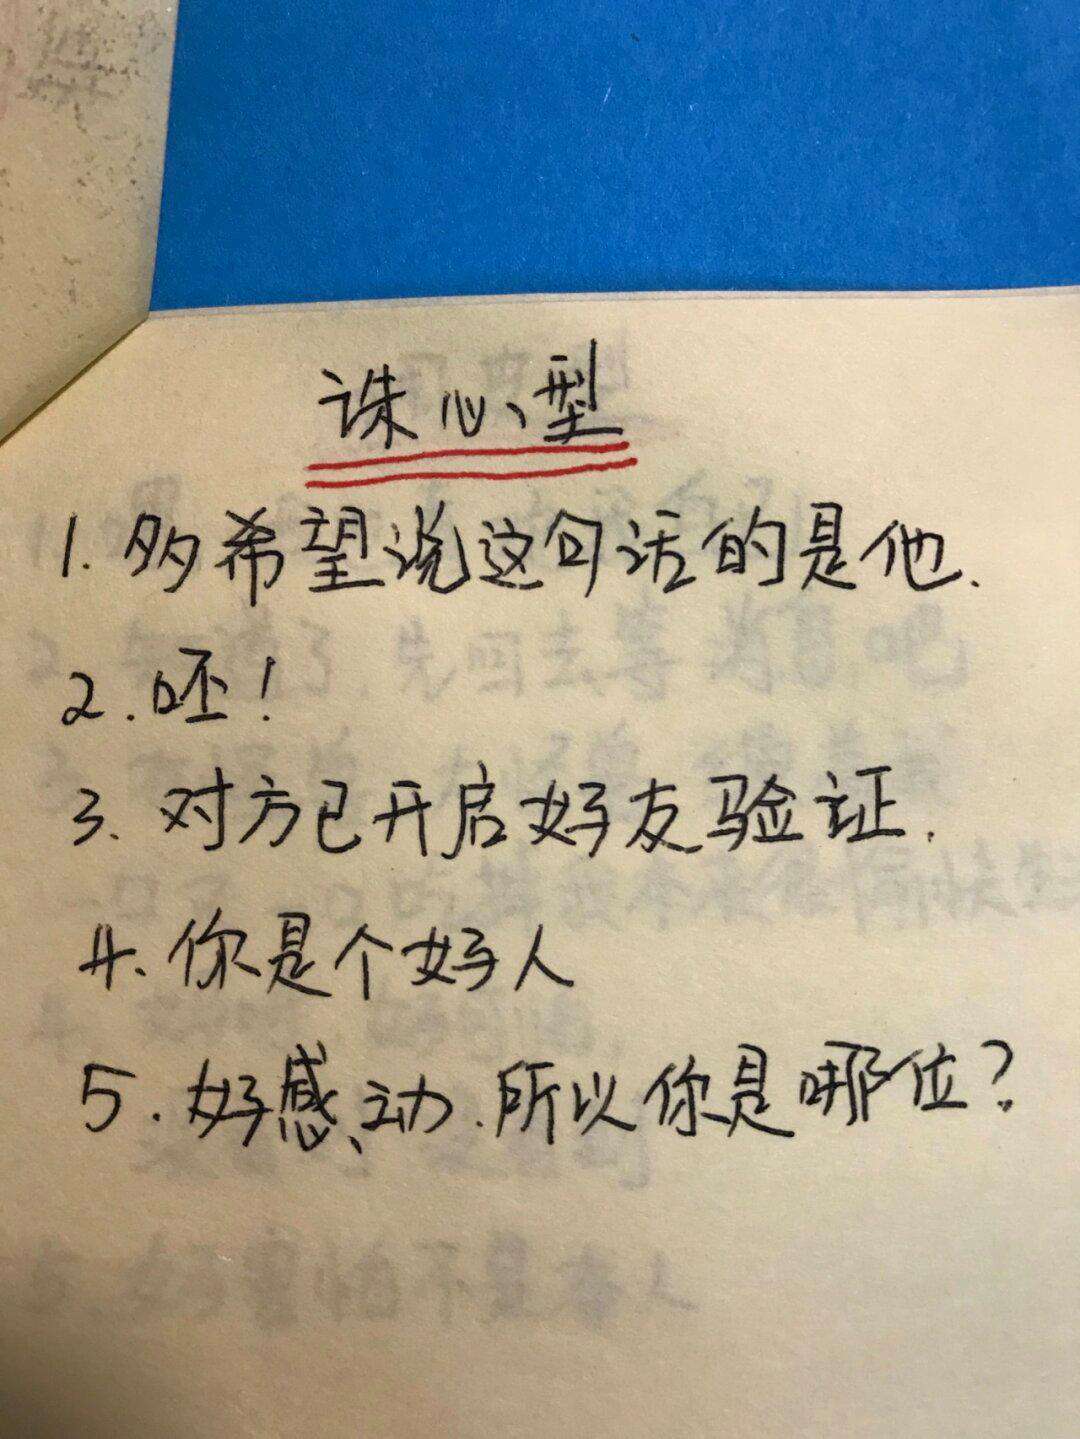 诛心型
1. 多希望说这句话的是他.
2. 呸!
3. 对方已开启好友验证.
4. 你是个好人
5. 好感动.所以你是哪位?